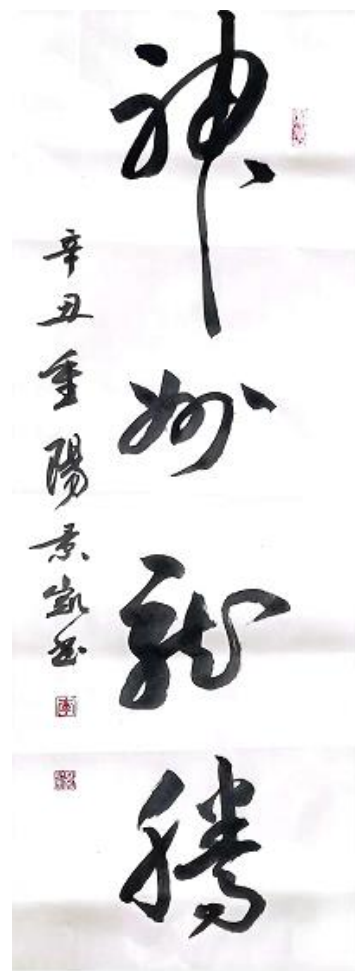 神州龍騰
辛丑重陽景嵐書